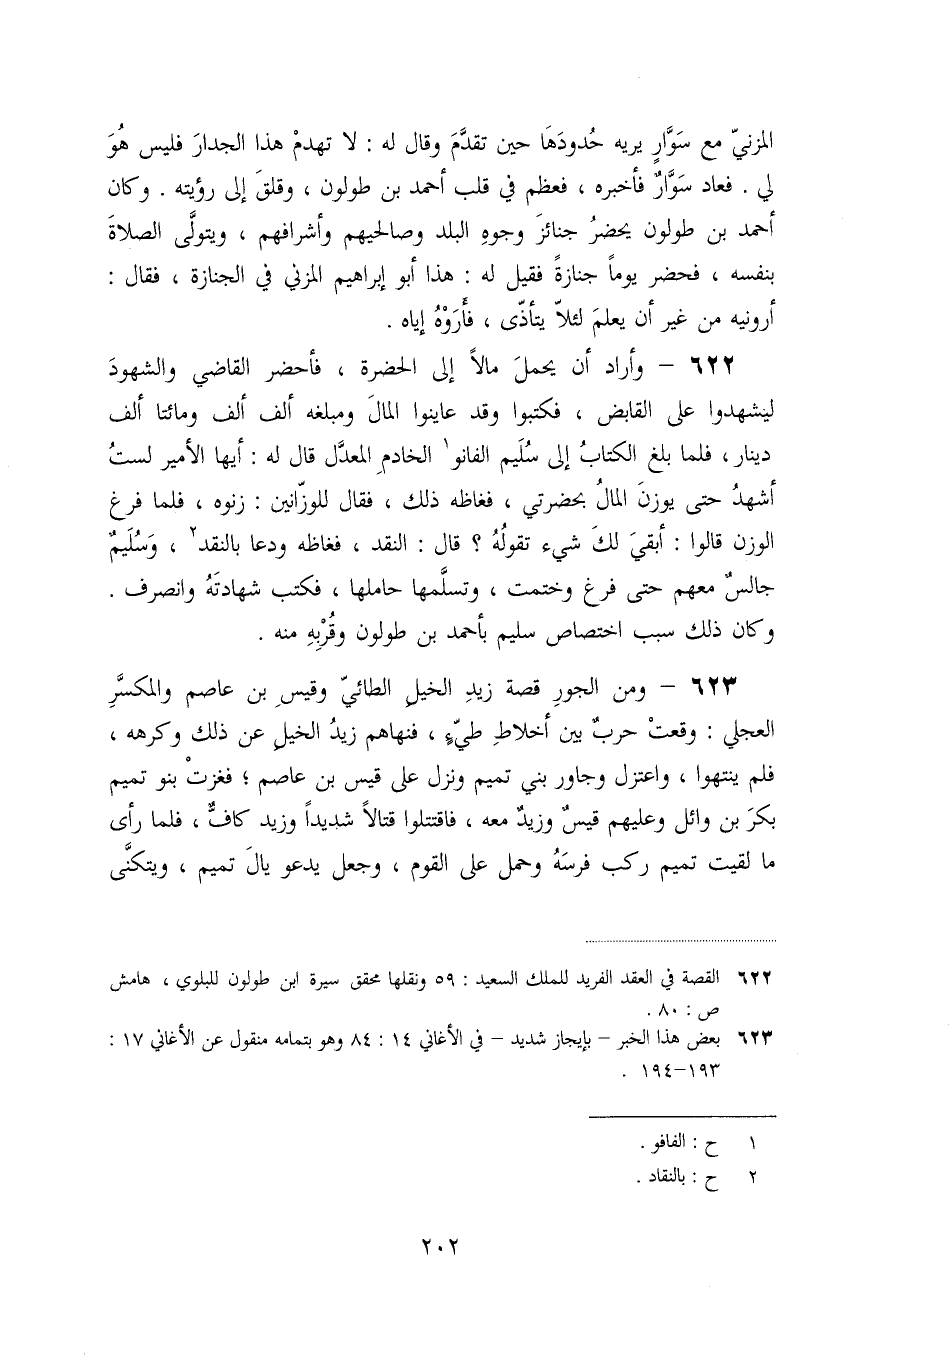 المزنيّ مع سَوَّارٍ يريه حُدودَهَا حين تقدَّمَ وقال له : لا تهدمْ هذا الجدارَ فليس هُوَ
لي . فعاد سَوَّارٌ فأخبره ، فعظم في قلب أحمد بن طولون ، وقلقَ إلى رؤيته . وكان
أحمد بن طولون يحضرُ جنائزَ وجوهِ البلد وصالحيهم وأشرافهم ، ويتولَّى الصلاةَ
بنفسه ، فحضر يوماً جنازةً فقيل له : هذا أبو إبراهيم المزني في الجنازة ، فقال :
أرونيه من غير أن يعلمَ لئلاّ يتأذّى ، فأَرَوْهُ إياه .
٦٢٢ – وأراد أن يحملَ مالاً إلى الحضرة ، فأحضر القاضي والشهودَ
ليشهدوا على القابض ، فكتبوا وقد عاينوا المالَ ومبلغه ألف ألف ومائتا ألف
دينار ، فلما بلغ الكتابُ إلى سُلَيم الفانو١ الخادمِ المعدَّل قال له : أيها الأمير لستُ
أشهدُ حتى يوزنَ المالُ بحضرتي ، فغاظه ذلك ، فقال للوزّانين : زنوه ، فلما فرغ
الوزن قالوا : أبقيَ لكَ شيء تقولُهُ ؟ قال : النقد ، فغاظه ودعا بالنقد٢ ، وَسُلَيمٌ
جالسٌ معهم حتى فرغ وختمت ، وتسلَّمها حاملها ، فكتب شهادتَهُ وانصرف .
وكان ذلك سبب اختصاص سليم بأحمد بن طولون وقُرْبِهِ منه .
٦٢٣ – ومن الجورِ قصة زيدِ الخيلِ الطائيّ وقيسِ بن عاصم والمكسَّرِ
العجلي : وقعتْ حربٌ بين أخلاطِ طيّءٍ ، فنهاهم زيدُ الخيلِ عن ذلك وكرهه ،
فلم ينتهوا ، واعتزل وجاور بني تميم ونزل على قيس بن عاصم ؛ فغزتْ بنو تميم
بكرَ بن وائل وعليهم قيسٌ وزيدٌ معه ، فاقتتلوا قتالاً شديداً وزيد كافٌّ ، فلما رأى
ما لقيت تميم ركب فرسَهُ وحمل على القوم ، وجعل يدعو يالَ تميم ، ويتكنَّى
٦٢٢ القصة في العقد الفريد للملك السعيد : ٥٩ ونقلها محقق سيرة ابن طولون للبلوي ، هامش
ص : ٨٠ .
٦٢٣ بعض هذا الخبر – بإيجاز شديد – في الأغاني ١٤ : ٨٤ وهو بتمامه منقول عن الأغاني ١٧ :
١٩٣–١٩٤ .
١ ح : الفافو .
٢ ح : بالنقاد .
٢٠٢